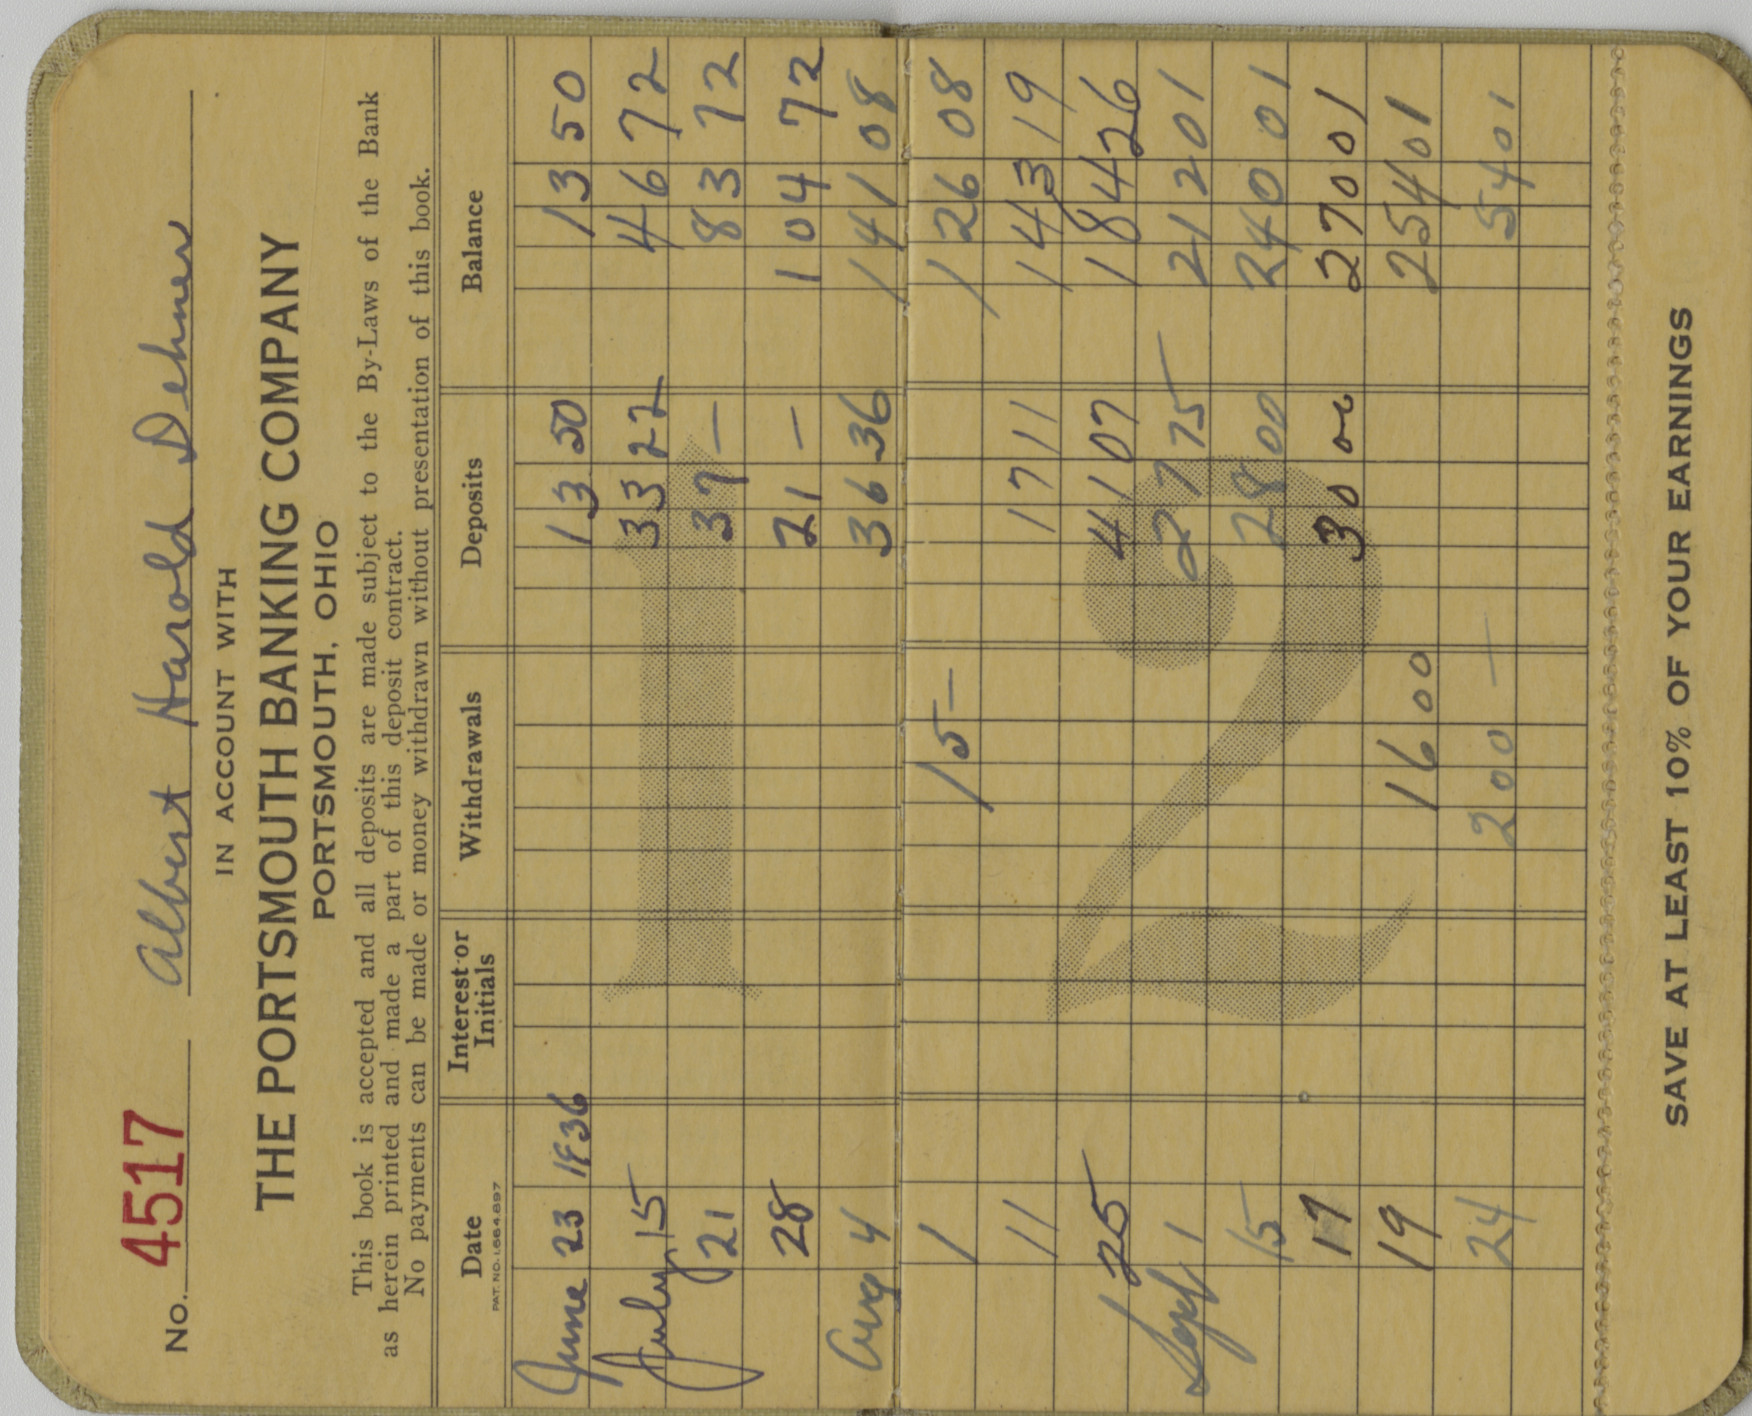 No. 4517 Albert Harold Dehner
IN ACCOUNT WITH
THE PORTSMOUTH BANKING COMPANY
PORTSMOUTH, OHIO
This book is accepted and all deposits are made subject to the By-Laws of the Bank
as herein printed and made a part of this deposit contract.
No payments can be made or money withdrawn without presentation of this book.
Date Interest or Initials Withdrawals Deposits Balance
PAT. NO. 1,664,897
June 23 1936 13 50 13 50
July 15 33 22 46 72
21 37 — 83 72
28 21 — 104 72
Aug 4 36 36 141 08
1 15 — 126 08
11 17 11 143 19
25 41 07 184 26
Sept 1 27 75 212 01
15 28 00 240 01
17 30 00 270 01
19 16 00 254 01
24 200 — 54 01
1
2
SAVE AT LEAST 10% OF YOUR EARNINGS